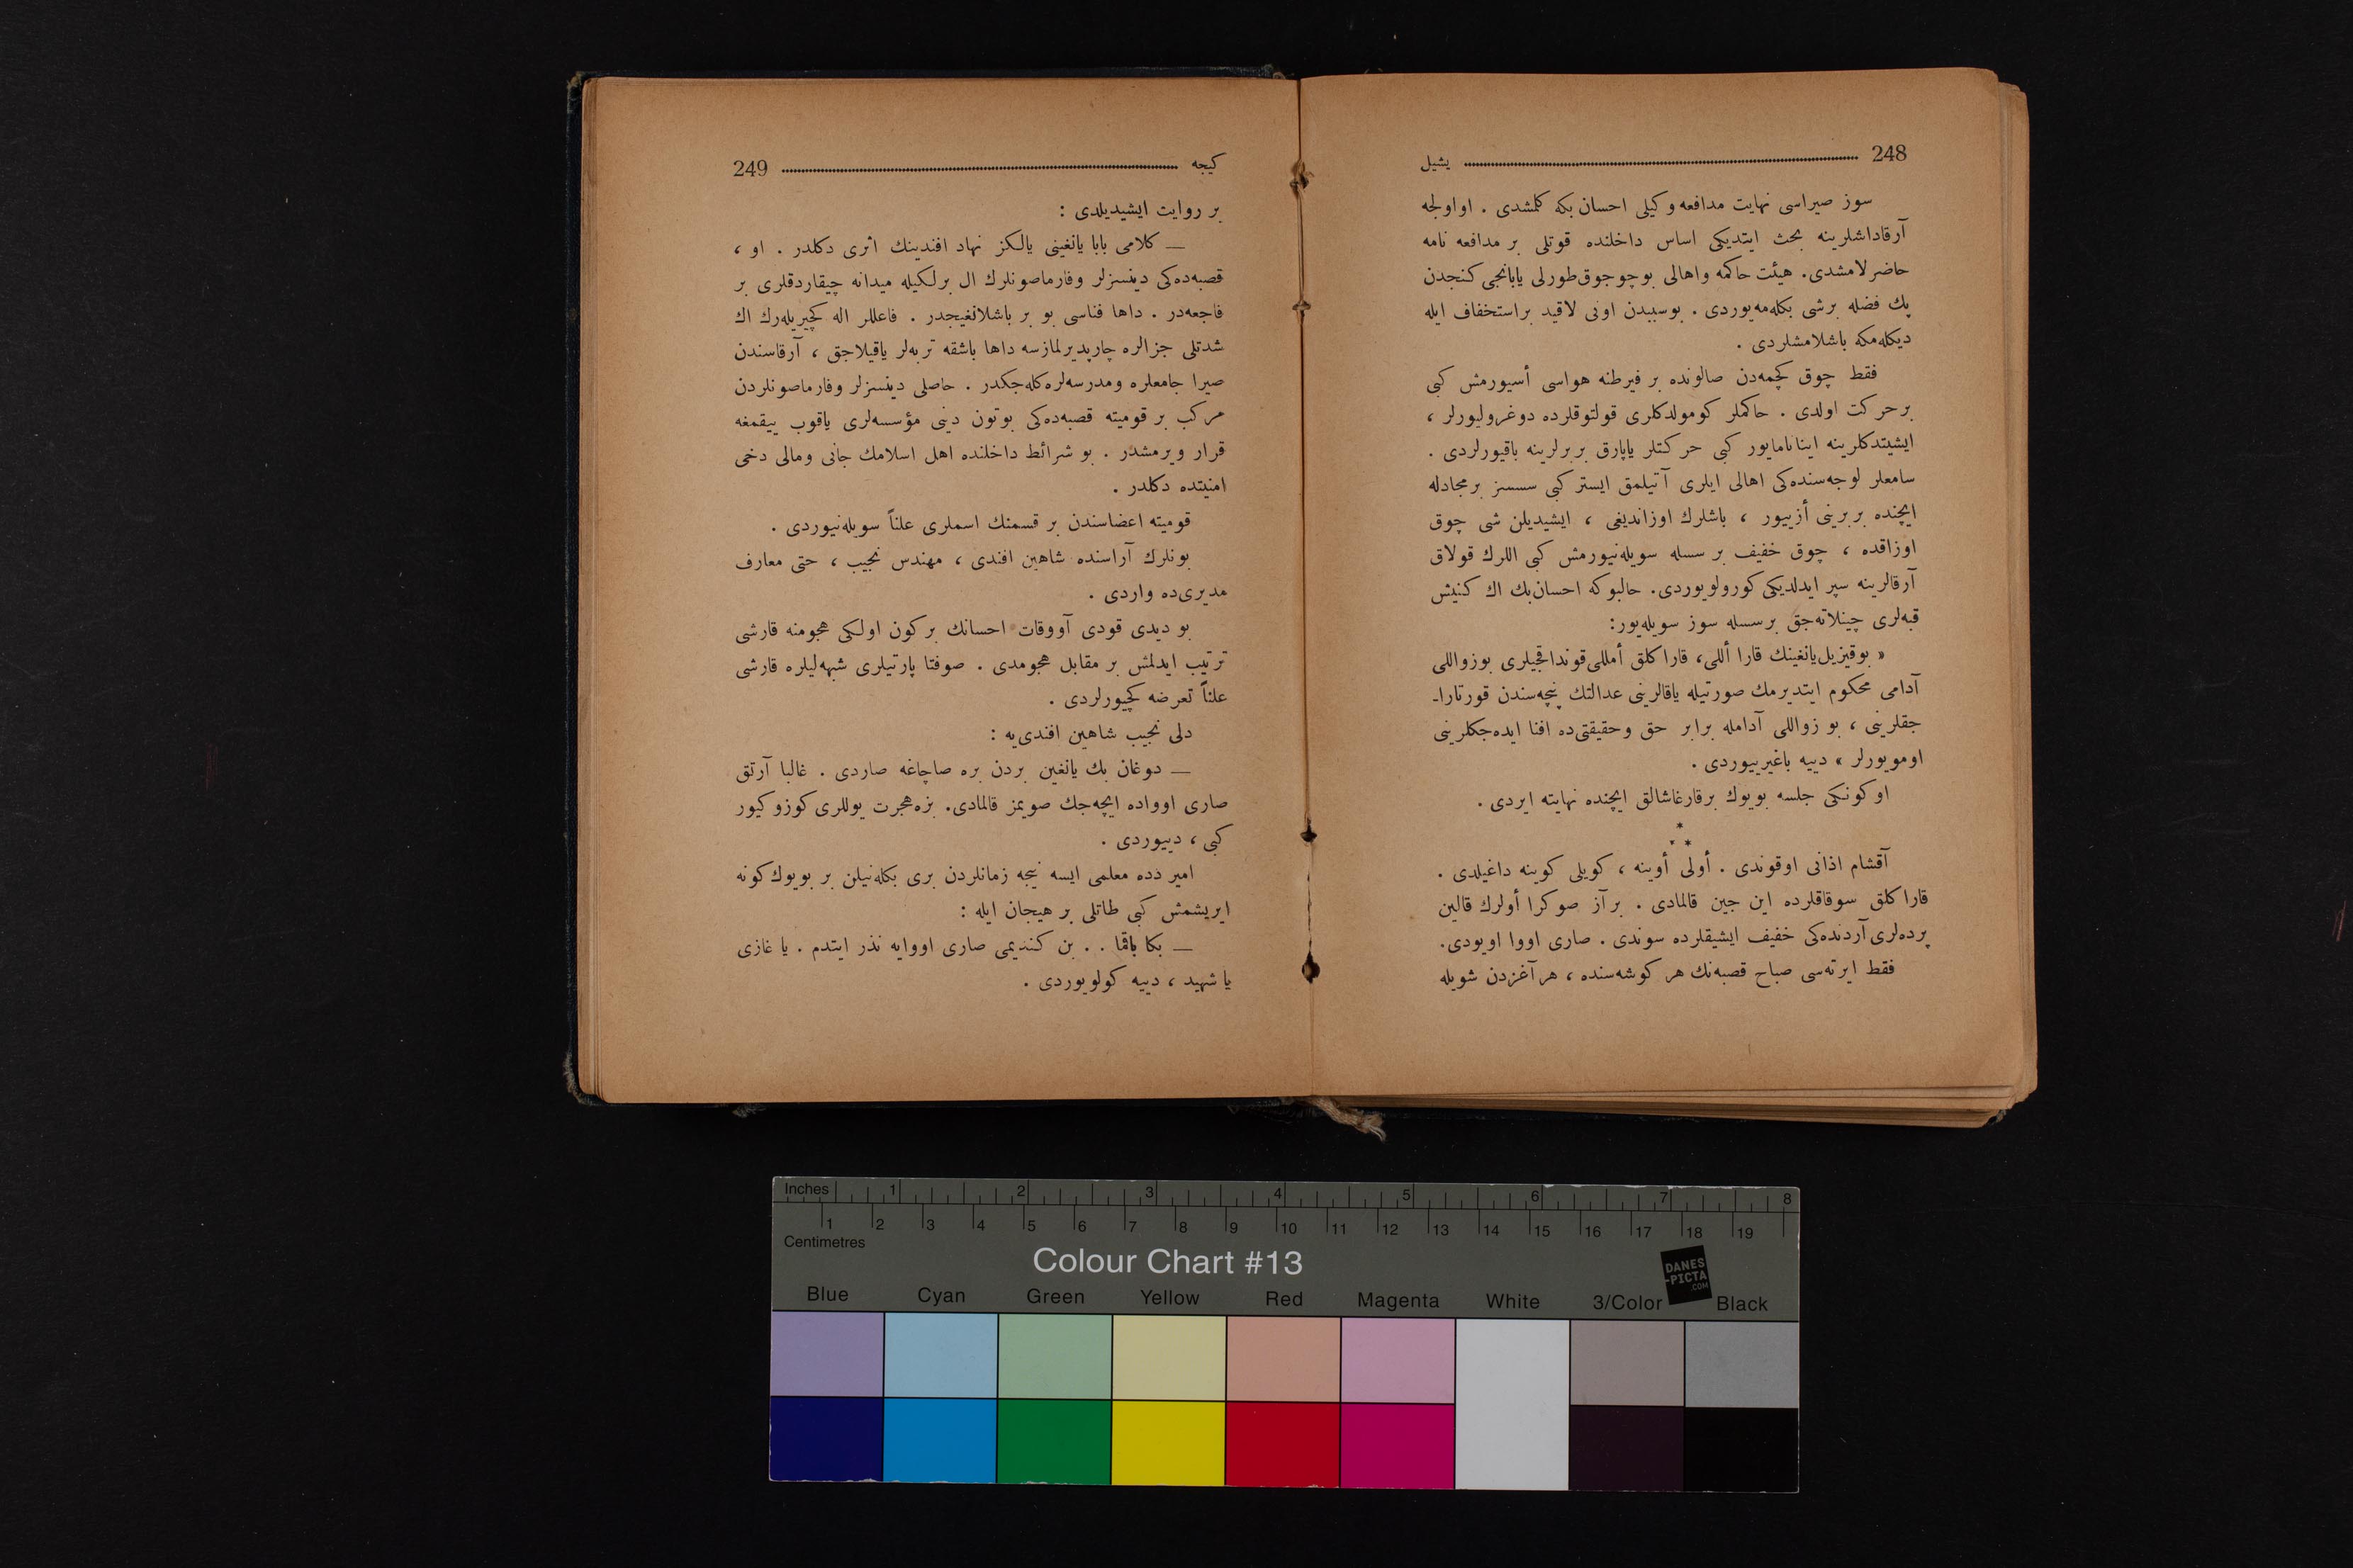 248 یشیل
سوز صیراسی نهایت مدافعه وكیلی احسان بكه كلمشدی . او اولجه
آرقاداشلرینه بحث ایتدیكی اساس داخلنده قوتلی بر مدافعه نامه
حاضرلامشدی. هیئت حاكمه واهالی بوچوجوق طورلی یابانجی كنجدن
پك فضله برشی بكله‌مه‌یوردی . بوسببدن اونی لاقید براستخفاف ایله
دیكله‌مكه باشلامشلردی .
فقط چوق كچمه‌دن صالونده بر فیرطنه هواسی أسیورمش كبی
برحركت اولدی . حاكملر كومولدكلری قولتوقلرده دوغرولیورلر ،
ایشیتدكلرینه اینانامایور كبی حركتلر یاپارق بربرلرینه باقیورلردی .
سامعلر لوجه‌سنده‌كی اهالی ایلری آتیلمق ایستر كبی سسسز برمجادله
ایچنده بربرینی أزییور ، باشلرك اوزاندیغی ، ایشیدیلن شی چوق
اوزاقده ، چوق خفیف بر سسله سویله‌نیورمش كبی اللرك قولاق
آرقالرینه سپر ایدلدیكی كورولویوردی. حالبوكه احسان بك اك كنیش
قبه‌لری چینلاته‌جق برسسله سوز سویله‌یور:
« بوقیزیل یانغینك قارا أللی، قاراكلق أمللی قونداقجیلری بوزواللی
آدامی محكوم ایتدیرمك صورتیله یاقالرینی عدالتك پنچه‌سندن قورتارا-
جقلرینی ، بو زواللی آدامله برابر حق وحقیقتی‌ده افنا ایده‌جكلرینی
اومویورلر » دییه باغیرییوردی .
او كونكی جلسه بویوك برقارغاشالق ایچنده نهایته ایردی .
*
* *
آقشام اذانی اوقوندی . أولی أوینه ، كویلی كوینه داغیلدی .
قاراكلق سوقاقلرده این جین قالمادی . برآز صوكرا أولرك قالین
پرده‌لری آردنده‌كی خفیف ایشیقلرده سوندی . صاری اووا اویودی.
فقط ایرته‌سی صباح قصبه‌نك هر كوشه‌سنده ، هر آغزدن شویله
كیجه 249
بر روایت ایشیدیلدی :
— كلامی بابا یانغینی یالكز نهاد افندینك اثری دكلدر . او ،
قصبه‌ده‌كی دینسزلر وفارماصونلرك ال برلكیله میدانه چیقاردقلری بر
فاجعه‌در . داها فناسی بو بر باشلانغیجدر . فاعللر اله كچیریله‌رك اك
شدتلی جزالره چارپدیرلمازسه داها باشقه تربه‌لر یاقیلاجق ، آرقاسندن
صیرا جامعلره ومدرسه‌لره كله‌جكدر . حاصلی دینسزلر وفارماصونلردن
مركب بر قومیته قصبه‌ده‌كی بوتون دینی مؤسسه‌لری یاقوب ییقمغه
قرار ویرمشدر . بو شرائط داخلنده اهل اسلامك جانی ومالی دخی
امنیتده دكلدر .
قومیته اعضاسندن بر قسمنك اسملری علناً سویله‌نیوردی .
بونلرك آراسنده شاهین افندی ، مهندس نجیب ، حتی معارف
مدیری‌ده واردی .
بو دیدی قودی آووقات احسانك بركون اولكی هجومنه قارشی
ترتیب ایدلمش بر مقابل هجومدی . صوفتا پارتیلری شبهه‌لیلره قارشی
علناً تعرضه كچیورلردی .
دلی نجیب شاهین افندی‌یه :
— دوغان بك یانغین بردن بره صاچاغه صاردی . غالبا آرتق
صاری اوواده ایچه‌جك صویمز قالمادی. بزه هجرت یوللری كوزوكیور
كبی ، دییوردی .
امیر دده معلمی ایسه نیجه زمانلردن بری بكله‌نیلن بر بویوك كونه
ایریشمش كبی طاتلی بر هیجان ایله :
— بكا باقما . . بن كندیمی صاری اووایه نذر ایتدم . یا غازی
یا شهید ، دییه كولویوردی .
Inches 1 2 3 4 5 6 7 8
1 2 3 4 5 6 7 8 9 10 11 12 13 14 15 16 17 18 19
Centimetres
Colour Chart #13
DANES
-PICTA
.COM
Blue Cyan Green Yellow Red Magenta White 3/Color Black